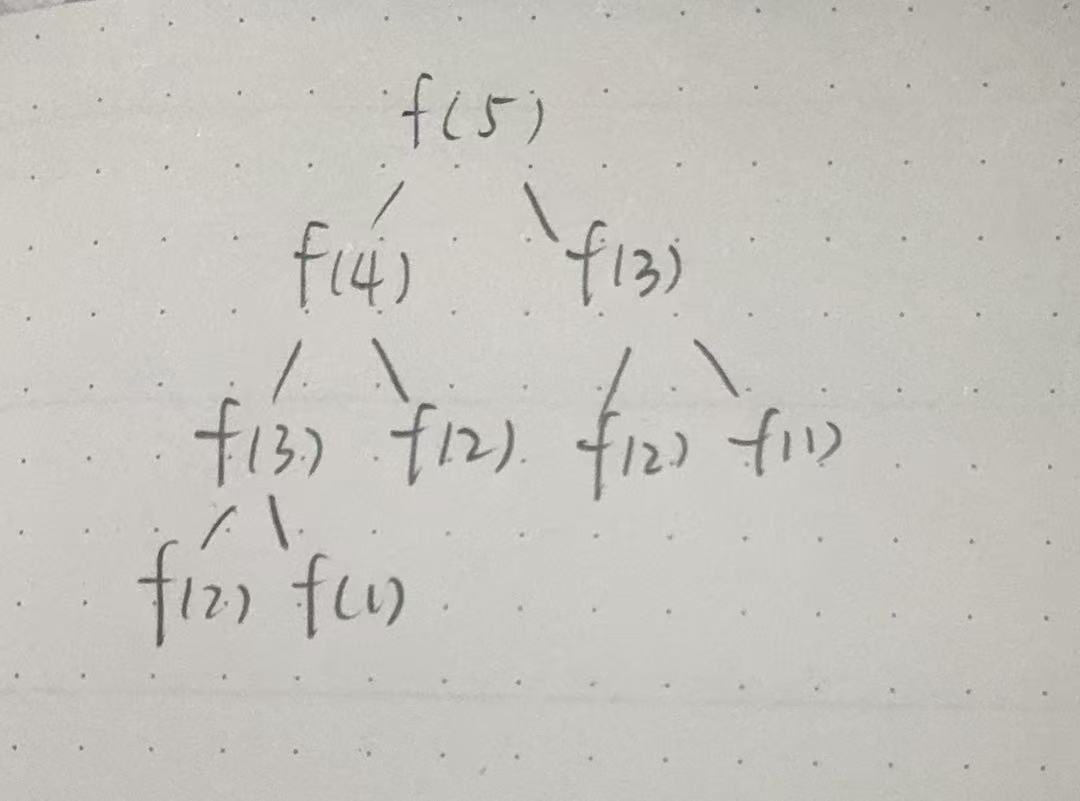 f(5)
f(4) f(3)
f(3) f(2) f(2) f(1)
f(2) f(1)